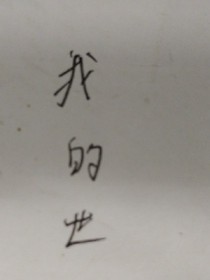 我的世